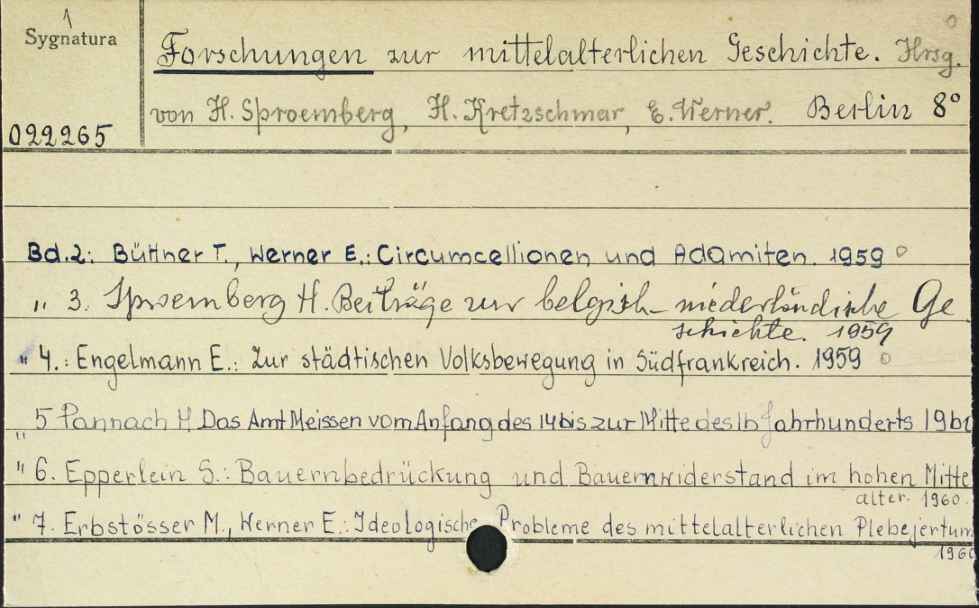 Sygnatura
022265
Forschungen zur mittelalterlichen Geschichte. Hrsg.
von H. Sproemberg, H. Kretzschmar, E. Werner. Berlin 8°
Bd.2: Büttner T., Werner E.: Circumcellionen und Adamiten. 1959
" 3. Sproemberg H. Beiträge zur belgisch-niederländische Ge
schichte. 1959
" 4.: Engelmann E.: Zur städtischen Volksbewegung in Südfrankreich. 1959
" 5 Pannach H. Das Amt Meissen vom Anfang des 14 bis zur Mitte des 16 Jahrhunderts
" 6. Epperlein S.: Bauernbedrückung und Bauernwiderstand im hohen Mitte
alter. 1960.
" 7. Erbstösser M., Werner E.: Ideologische Probleme des mittelalterlichen Plebejertum
1960